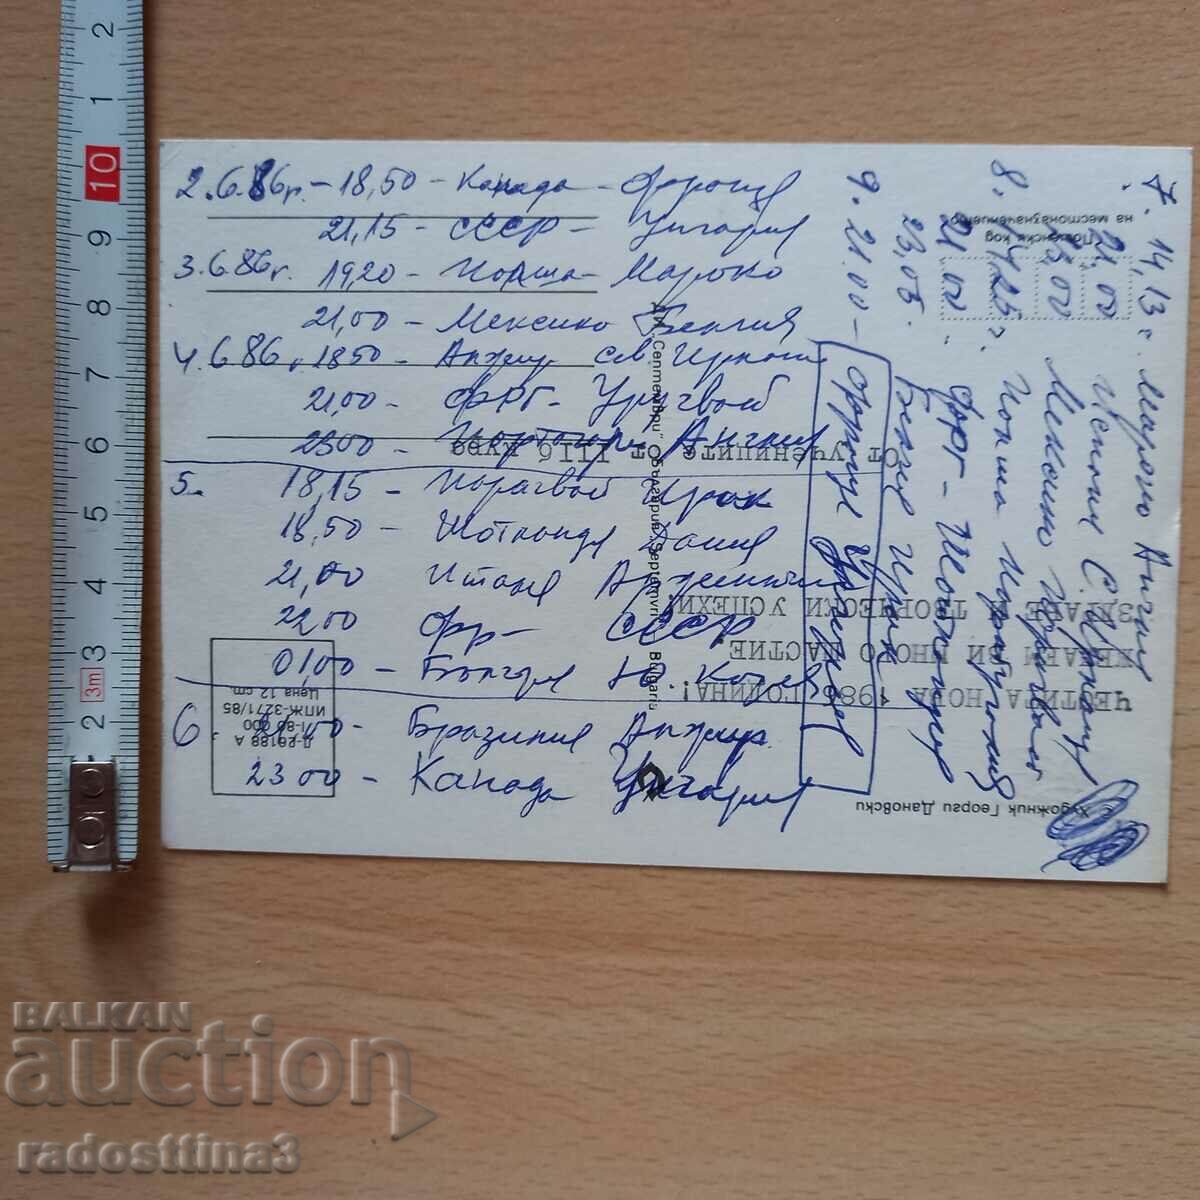 2.6.86г. – 18,50 – Канада – Франция
21,15 – СССР – Унгария
3.6.86г. 19,20 – Полша – Мароко
21,00 – Мексико Белгия
4.6.86г. 18,50 – Алжир Сев Ирландия
21,00 – ФРГ – Уругвай
23,00 – Португалия Англия
5. 18,15 – Парагвай Ирак
18,50 – Шотландия Дания
21,00 Италия Аржентина
22,00 Фр – СССР
01,00 – Българ Ю. Корея
6. Бразилия Алжир
23 00 – Канада Унгария
7. 14,13 г. Мароко Англия
21,00 Испания С. Ирланд
Мексико Парагвай
8. Полша Португалия
21,00 ФРГ – Шотландия
23,05. Белгия Ирак
9. 21.00 – Франция Унгария
Пощенски код
на местоназначението
ДИ „Септември“ България, Septemvri, Bulgaria
ЧЕСТИТА НОВА 1986 ГОДИНА!
ЖЕЛАЕМ ВИ МНОГО ЩАСТИЕ,
ЗДРАВЕ И ТВОРЧЕСКИ УСПЕХИ!
ОТ УЧЕНИЦИТЕ ОТ IIIб КУРС
Художник Георги Дановски
Д-26188 А
ИПЖ-3271/85
Цена 12 ст.
2
1
10
9
8
7
6
5
4
3
3m
2
BALKAN
auction
radosttina3